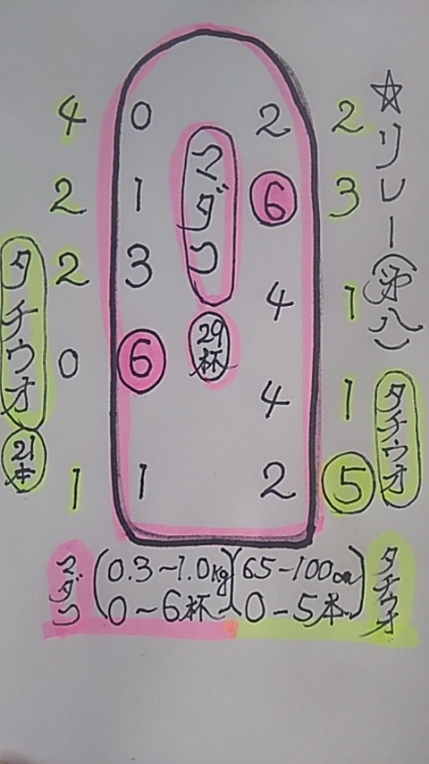 ☆リレー(第八)
4 0 2 2
2 1 6 3
2 3 4 1
0 6 4 1
1 1 2 5
マダコ
29杯
タチウオ
21本
タチウオ
マダコ (0.3~1.0kg)(65-100cm) タチウオ
0~6杯 0-5本